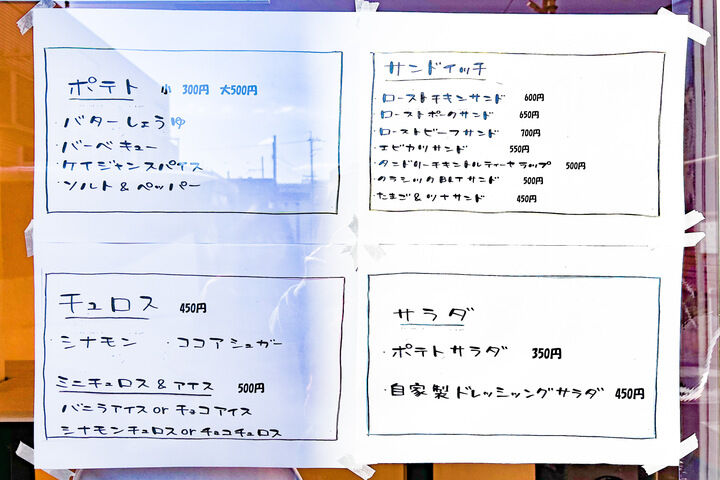 ポテト 小 300円 大500円
・バターしょうゆ
・バーベキュー
・ケイジャンスパイス
・ソルト & ペッパー
サンドイッチ
・ローストチキンサンド 600円
・ローストポークサンド 650円
・ローストビーフサンド 700円
・エビカツサンド 550円
・タンドリーチキントルティーヤラップ 500円
・クラシックBLTサンド 500円
・たまご&ツナサンド 450円
チュロス 450円
・シナモン ・ココアシュガー
ミニチュロス & アイス 500円
バニラアイス or チョコアイス
シナモンチュロス or チョコチュロス
サラダ
・ポテトサラダ 350円
・自家製ドレッシングサラダ 450円